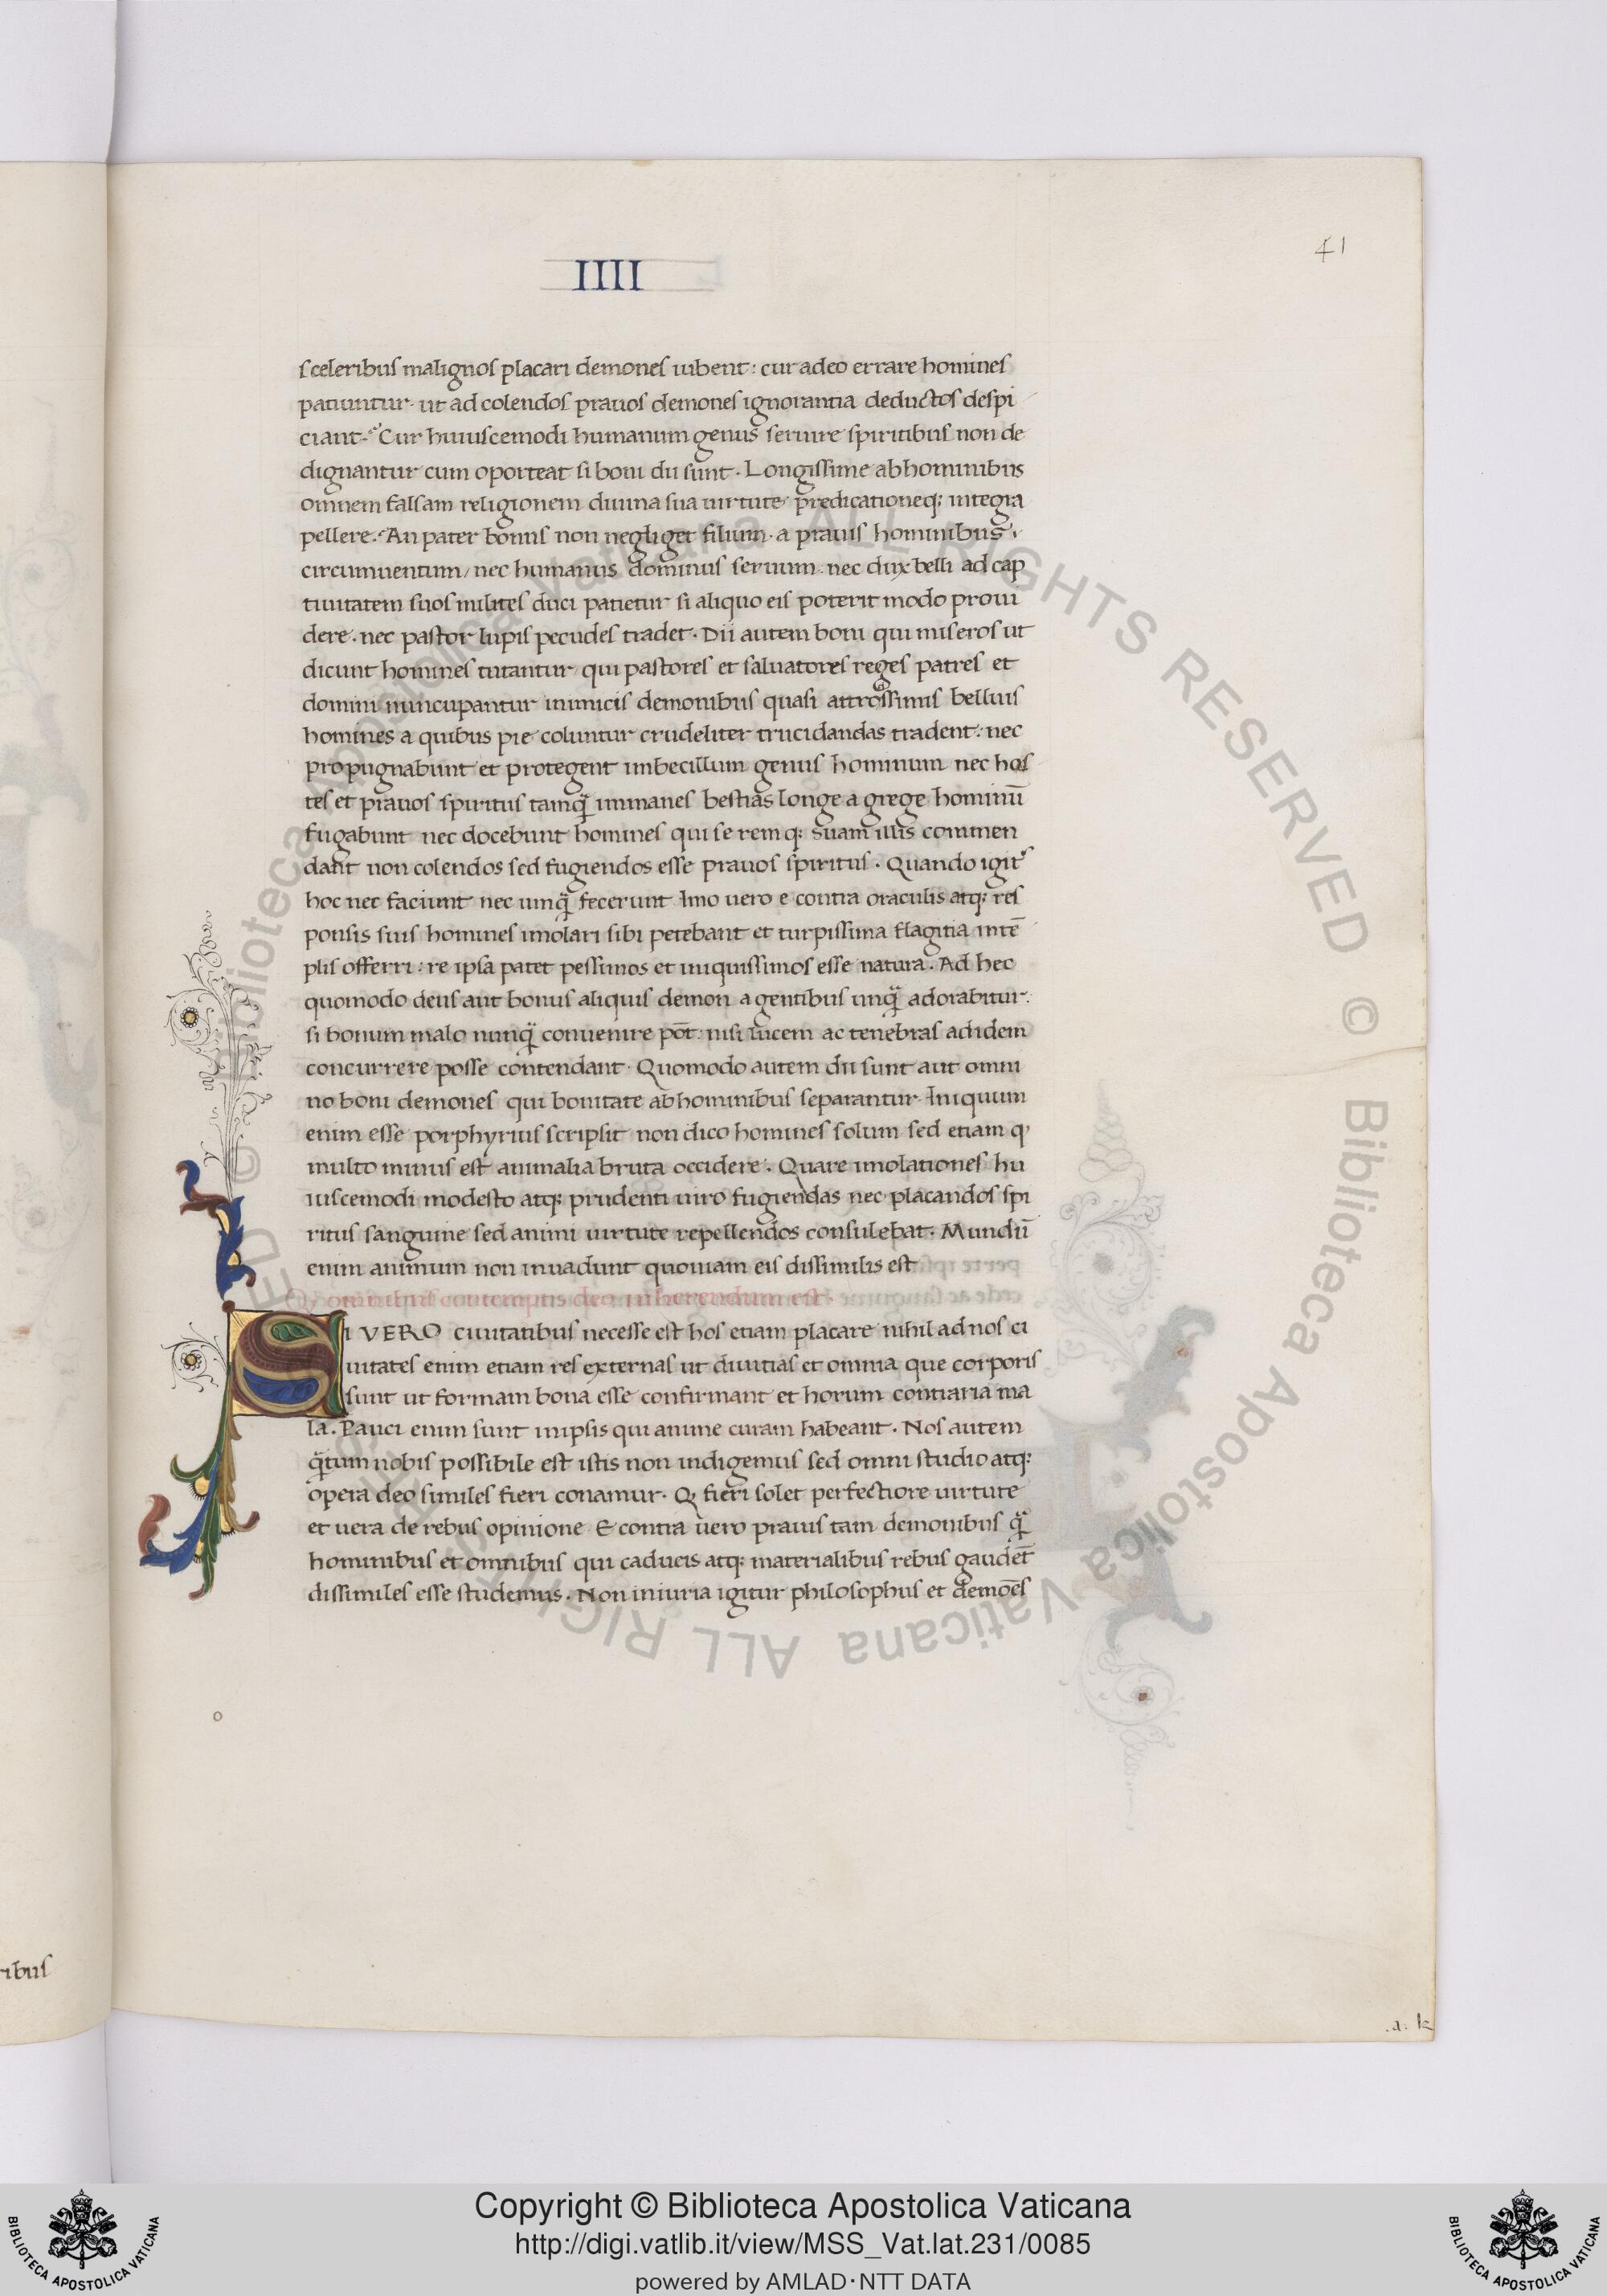 41
IIII
sceleribus malignos placari demones iubent: cur adeo errare homines
patiuntur. ut ad colendos prauos demones ignorantia deductos despi
ciant. Cur huiuscemodi humanum genus seruire spiritibus non de
dignantur cum oporteat si boni dii sunt. Longissime ab hominibus
omnem falsam religionem diuina sua uirtute predicationeq; integra
pellere. An pater bonus non negliget filium. a prauis hominibus
circumuentum, nec humanus dominus seruum. nec dux belli ad cap
tiuitatem suos milites duci patietur si aliquo eis poterit modo proui
dere. nec pastor lupis pecudes tradet. Dii autem boni qui miseros ut
dicunt homines tutantur, qui pastores et saluatores reges patres et
domini nuncupantur inimicis demonibus quasi attrocissimis belluis
homines a quibus pie coluntur crudeliter trucidandas tradent: nec
propugnabunt et protegent imbecillum genus hominum nec hos
tes et prauos spiritus tamq̃ immanes bestias longe a grege hominū
fugabunt nec docebunt homines qui se rem q; suam illis commen
dant non colendos sed fugiendos esse prauos spiritus. Quando igit᷑
hoc nec faciunt nec unq̃ fecerunt Imo uero e contra oraculis atq; res
ponsis suis homines imolari sibi petebant et turpissima flagitia in tē
plis offerri: re ipsa patet pessimos et iniquissimos esse natura. Ad hec
quomodo deus aut bonus aliquis demon a gentibus unq̃ adorabitur.
si bonum malo nunq̃ conuenire pōt: nisi lucem ac tenebras ad idem
concurrere posse contendant. Quomodo autem dii sunt aut omni
no boni demones qui bonitate ab hominibus separantur. Iniquum
enim esse porphyrius scripsit non dico homines solum sed etiam q'
multo minus est animalia bruta occidere. Quare imolationes hu
iuscemodi modesto atq; prudenti uiro fugiendas nec placandos spi
ritus sanguine sed animi uirtute repellendos consulebat. Mundū
enim animum non inuadunt quoniam eis dissimilis est
Q omnibus contemptis deo inherendum est.
SI VERO ciuitatibus necesse est hos etiam placare nihil ad nos ci
uitates enim etiam res externas ut diuitias et omnia que corporis
sunt ut formam bona esse confirmant et horum contraria ma
la. Pauci enim sunt in ipsis qui anime curam habeant. Nos autem
q̃tum nobis possibile est istis non indigemus sed omni studio atq;
opera deo similes fieri conamur. Q fieri solet perfectiore uirtute
et uera de rebus opinione E contra uero prauis tam demonibus q̃
hominibus et omnibus qui caducis atq; materialibus rebus gaudēt
dissimiles esse studemus. Non iniuria igitur philosophus et demoēs
o
.a. k
ribus
Copyright © Biblioteca Apostolica Vaticana
http://digi.vatlib.it/view/MSS_Vat.lat.231/0085
powered by AMLAD·NTT DATA
BIBLIOTECA APOSTOLICA VATICANA
BIBLIOTECA APOSTOLICA VATICANA
© Biblioteca Apostolica Vaticana ALL RIGHTS RESERVED © Biblioteca Apostolica Vaticana ALL RIGHTS RESERVED